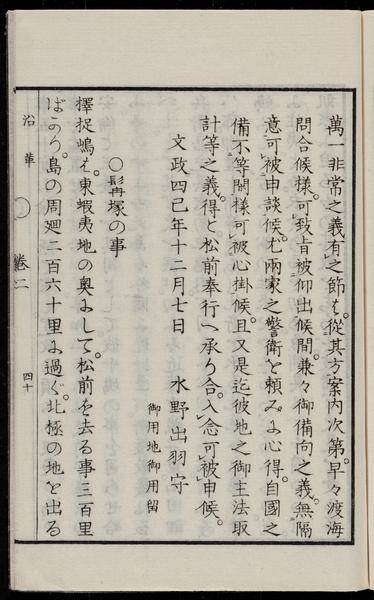 萬一非常之義有之節は。從其方案内次第。早々渡海
問合候樣。可致旨被仰出候間。兼々御備向之義。無隔
意可被申談候。尤兩家之警衛を頼みに心得。自國之
備不等閑樣可被心掛候。且又是迄彼地之御主法取
計等之義。得と松前奉行へ承り合。入念可被申候。
文政四巳年十二月七日　水野出羽守
御用地御用留
○髯塚の事
擇捉嶋は。東蝦夷地の奥にして。松前を去る事三百里
ばかり。島の周廻二百六十里に過ぐ。北極の地を出る
沿革
卷二
四十